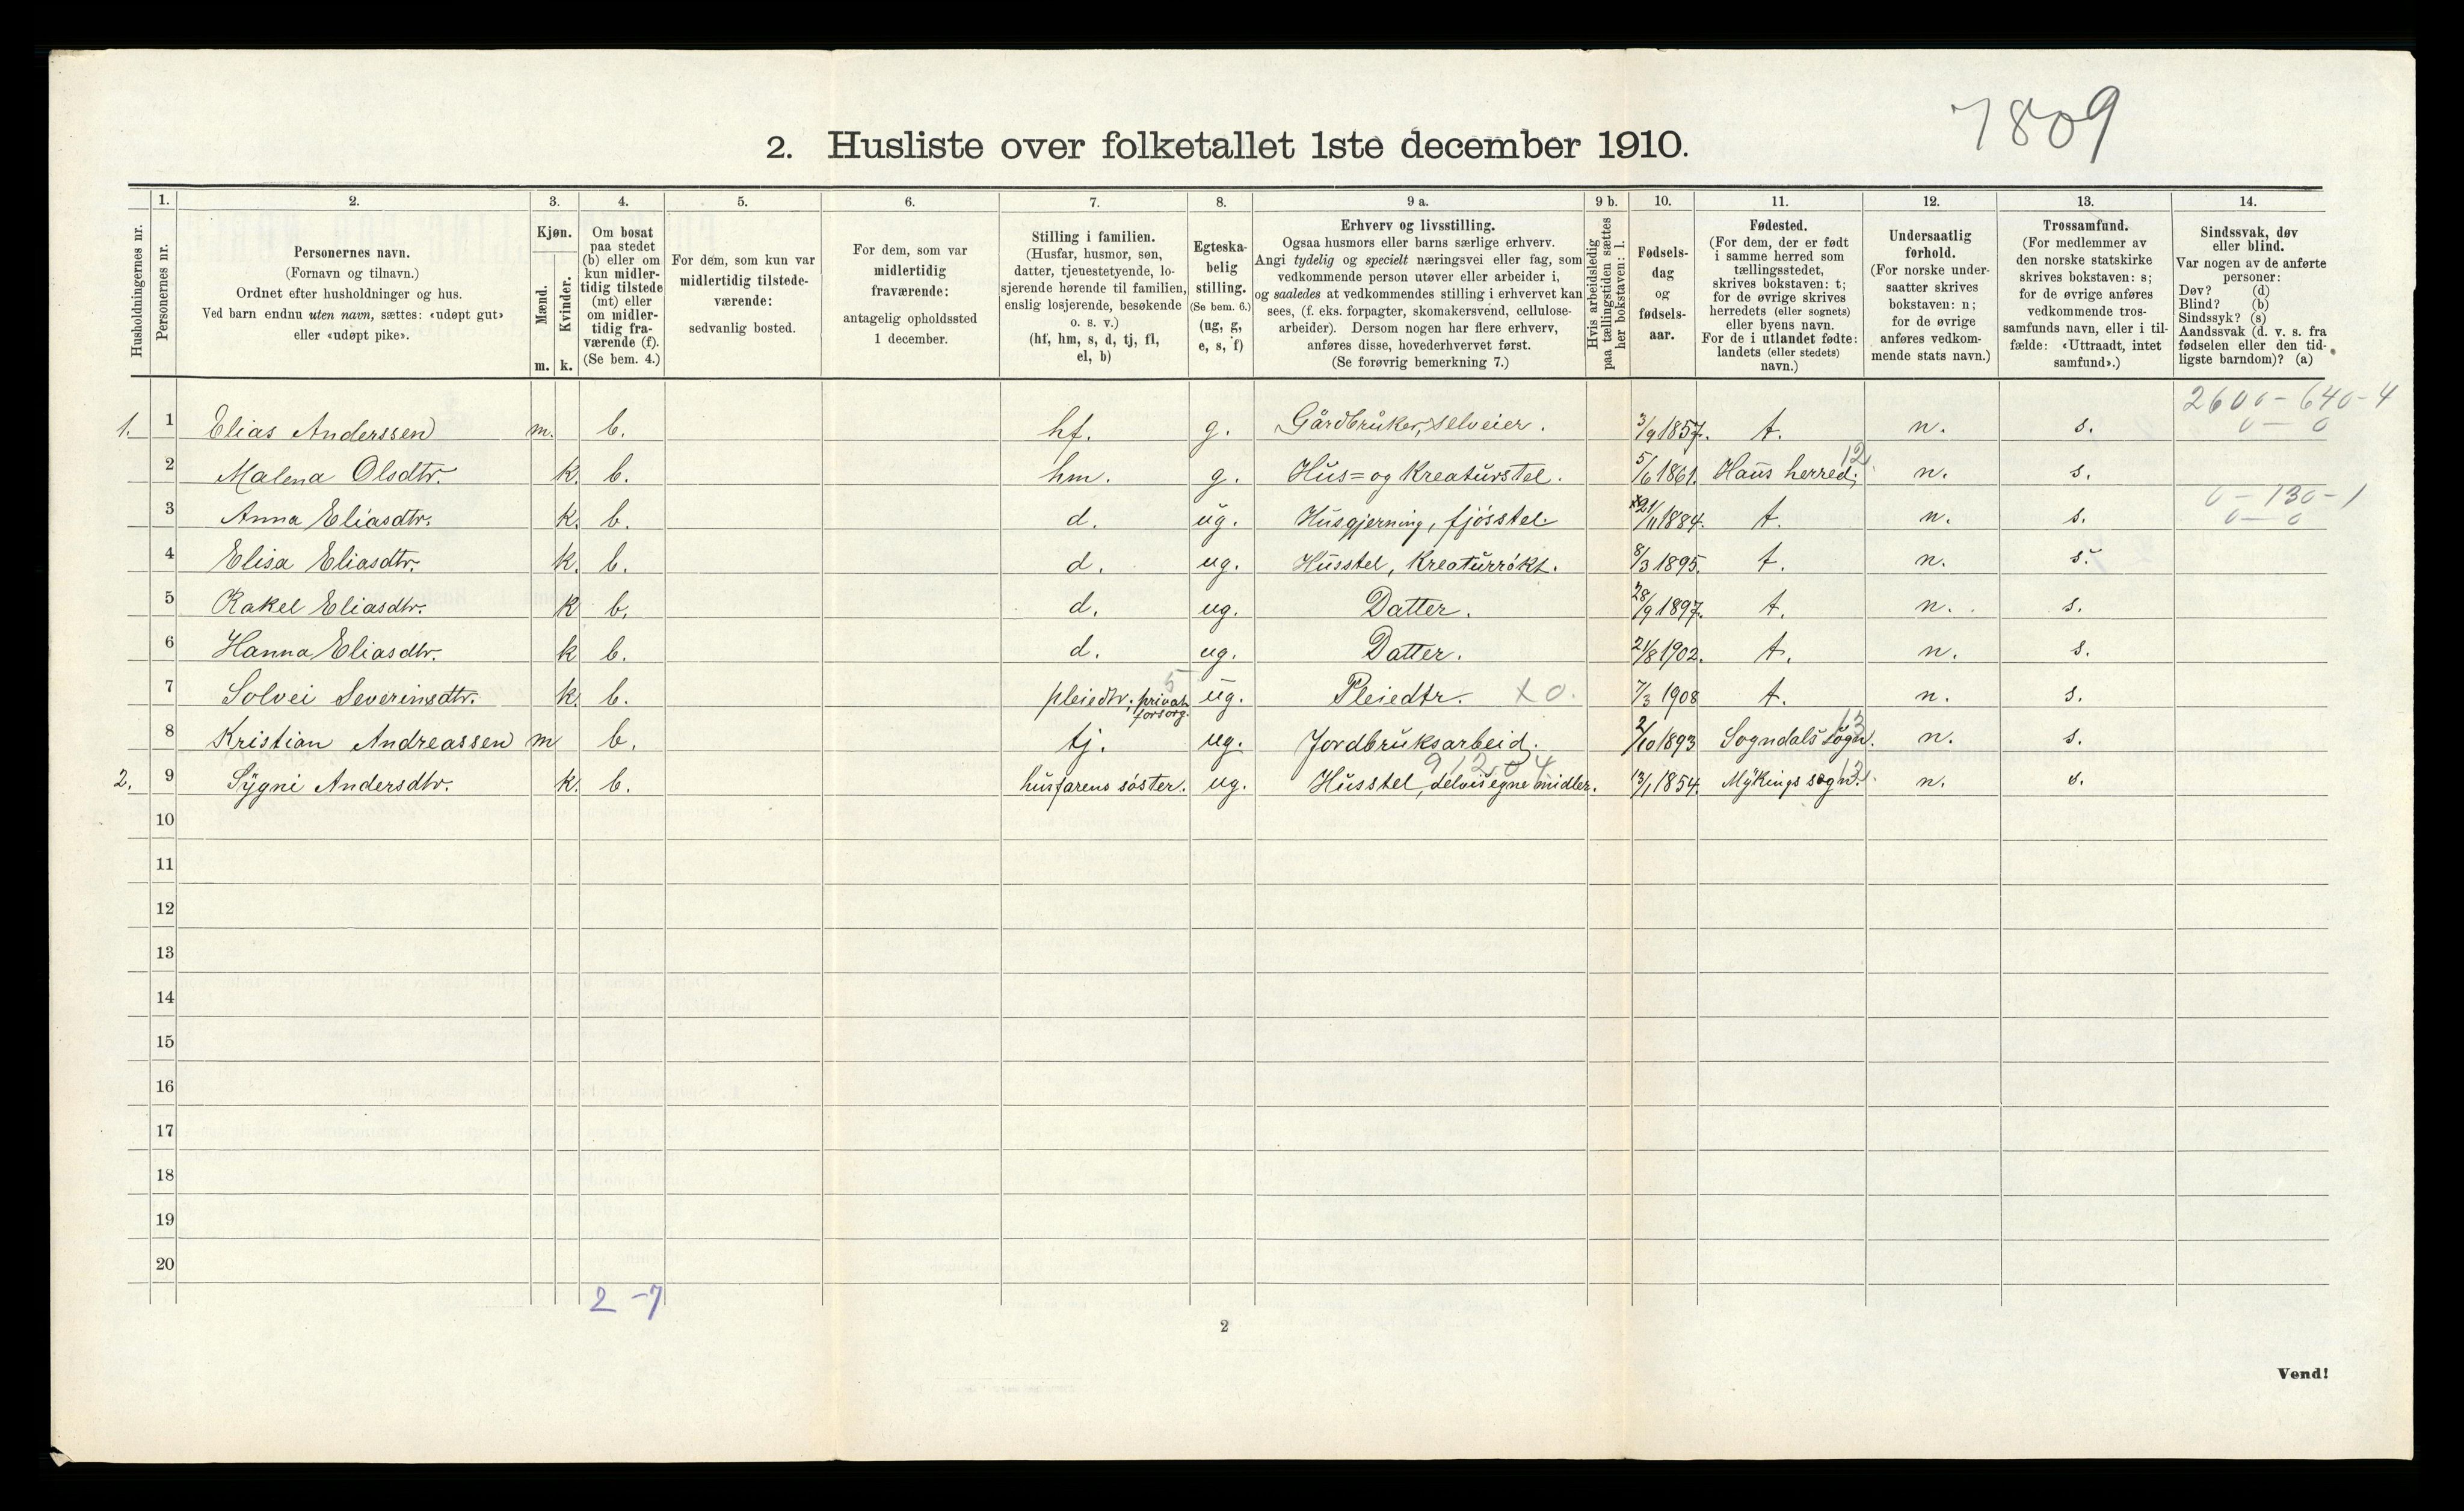 7809
2. Husliste over folketallet 1ste december 1910.
Husholdningernes nr.
1.
Personernes nr.
2.
Personernes navn.
(Fornavn og tilnavn.)
Ordnet efter husholdninger og hus.
Ved barn endnu uten navn, sættes: «udøpt gut»
eller «udøpt pike».
3.
Kjøn.
Mænd.
Kvinder.
m. k.
4.
Om bosat
paa stedet
(b) eller om
kun midler-
tidig tilstede
(mt) eller
om midler-
tidig fra-
værende (f).
(Se bem. 4.)
5.
For dem, som kun var
midlertidig tilstede-
værende:
sedvanlig bosted.
6.
For dem, som var
midlertidig
fraværende:
antagelig opholdssted
1 december.
7.
Stilling i familien.
(Husfar, husmor, søn,
datter, tjenestetyende, lo-
sjerende hørende til familien,
enslig losjerende, besøkende
o. s. v.)
(hf, hm, s, d, tj, fl,
el, b)
8.
Egteska-
belig
stilling.
(Se bem. 6.)
(ug, g,
e, s, f)
9 a.
Erhverv og livsstilling.
Ogsaa husmors eller barns særlige erhverv.
Angi tydelig og specielt næringsvei eller fag, som
vedkommende person utøver eller arbeider i,
og saaledes at vedkommendes stilling i erhvervet kan
sees, (f. eks. forpagter, skomakersvend, cellulose-
arbeider). Dersom nogen har flere erhverv,
anføres disse, hovederhvervet først.
(Se forøvrig bemerkning 7.)
9 b.
Hvis arbeidsledig
paa tællingstiden sættes
her bokstaven: l.
10.
Fødsels-
dag
og
fødsels-
aar.
11.
Fødested.
(For dem, der er født
i samme herred som
tællingsstedet,
skrives bokstaven: t;
for de øvrige skrives
herredets (eller sognets)
eller byens navn.
For de i utlandet fødte:
landets (eller stedets)
navn.)
12.
Undersaatlig
forhold.
(For norske under-
saatter skrives
bokstaven: n;
for de øvrige
anføres vedkom-
mende stats navn.)
13.
Trossamfund.
(For medlemmer av
den norske statskirke
skrives bokstaven: s;
for de øvrige anføres
vedkommende tros-
samfunds navn, eller i til-
fælde: «Uttraadt, intet
samfund».)
14.
Sindssvak, døv
eller blind.
Var nogen av de anførte
personer:
Døv? (d)
Blind? (b)
Sindssyk? (s)
Aandssvak (d. v. s. fra
fødselen eller den tid-
ligste barndom)? (a)
2600 - 640 - 4
1. 1 Elias Anderssen m. b. hf. g. Gårdbruker, selveier. 3/9 1857. t. n. s. 0 — 0
12
2 Malena Olsdtr. k. b. hm. g. Hus= og Kreaturstel. 5/6 1861. Haus herred. n. s.
0 - 130 - 1
3 Anna Eliasdtr. k. b. d. ug. Husgjerning, fjósstel. 21/11 1884. t. n. s. 0 — 0
4 Elisa Eliasdtr. k. b. d. ug. Husstel, Kreaturrókt. 8/3 1895. t. n. s.
5 Rakel Eliasdtr. k b. d. ug. Datter. 28/9 1897. t. n. s.
6 Hanna Eliasdtr. k b. d. ug. Datter. 21/8 1902. t. n. s.
5
7 Solvei Severinsdtr. k. b. pleiedtr; privat forsorg. ug. Pleiedtr. x 0. 7/3 1908 t. n. s.
13
8 Kristian Andreassen m b. tj. ug. Jordbruksarbeid. 2/10 1893 Sogndals sogn. n. s.
2. 9 Sygni Andersdtr. k. b. husfarens sóster. ug. Husstel, delvis egne midler. 13/1 1854. Mykings sogn. n. s.
10
11
12
13
14
15
16
17
18
19
20
2 - 7
2
Vend!